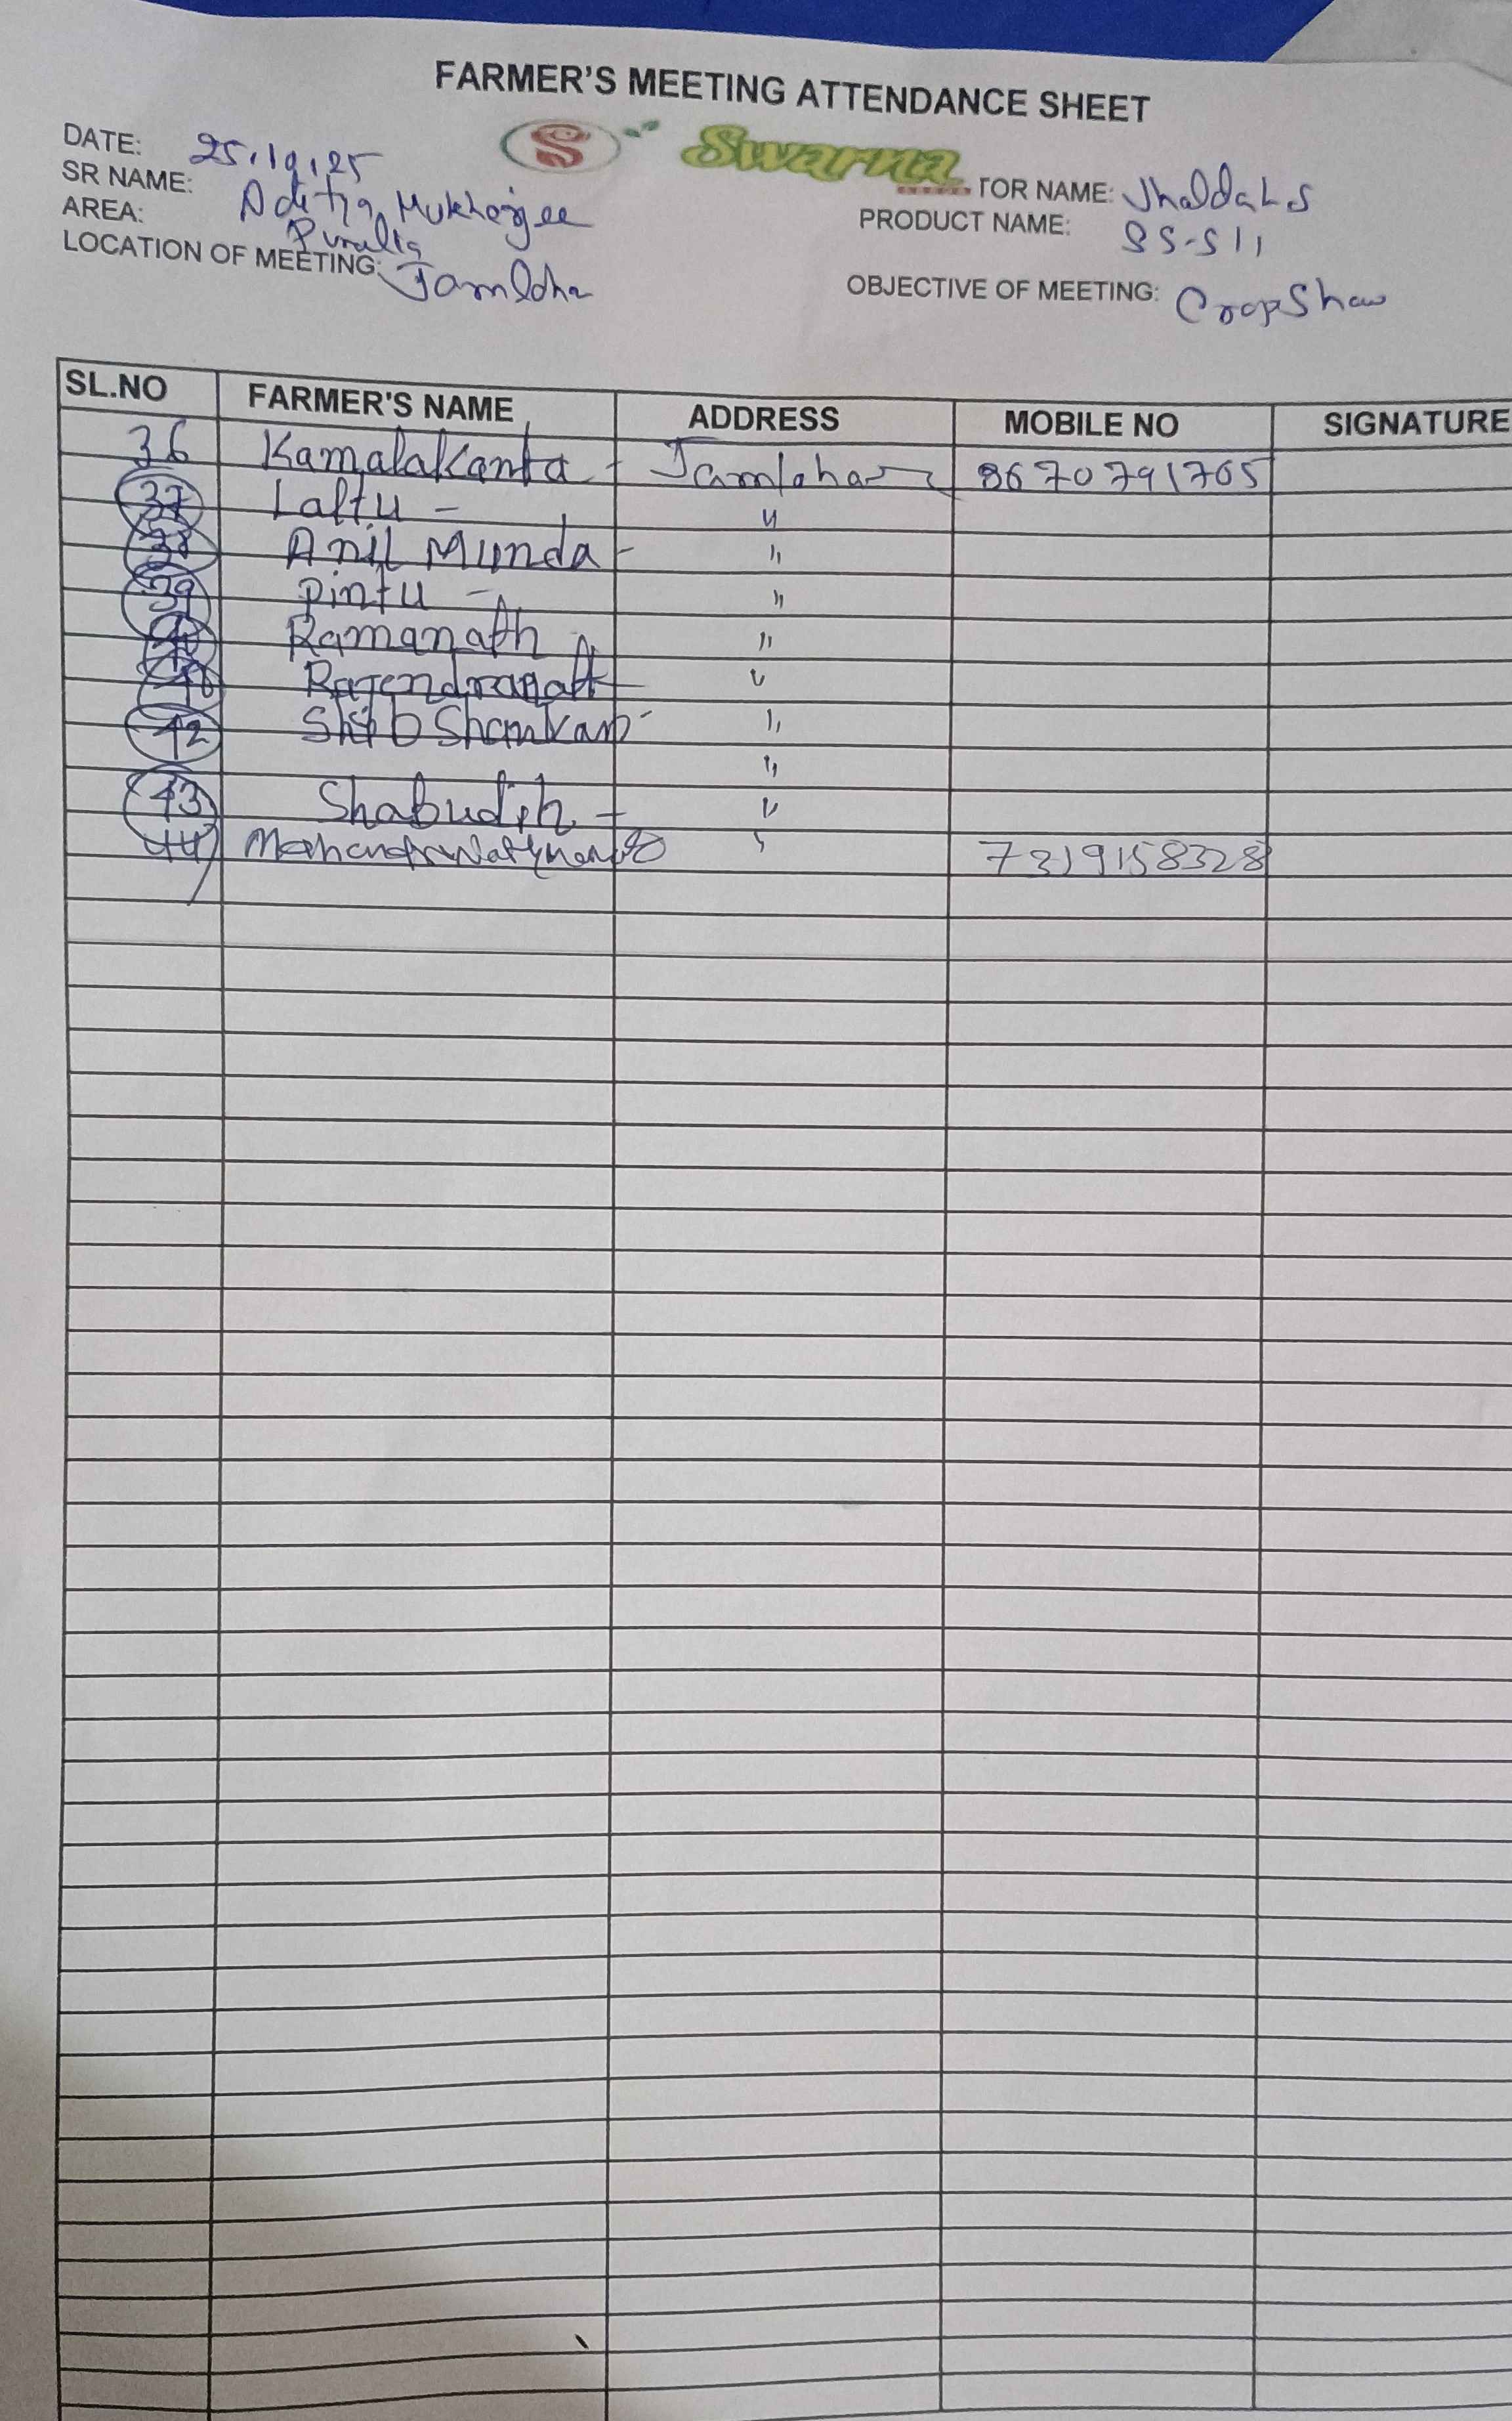 FARMER'S MEETING ATTENDANCE SHEET
S Swarna
DATE: 25.10.25
SR NAME: Aditya Mukherjee
TOR NAME: Jhalda L S
AREA: Purulia
PRODUCT NAME: SS-511
LOCATION OF MEETING: Jamldha
OBJECTIVE OF MEETING: Crop Show
SL.NO FARMER'S NAME ADDRESS MOBILE NO SIGNATURE
36 Kamalakanta - 8670791765
37 Laltu - "
38 Anil Munda - "
39 Pintu - "
40 Ramanath "
Rajendranath "
42 Shib Shankar - "
"
43 Shabudih - "
44 " 7319158328